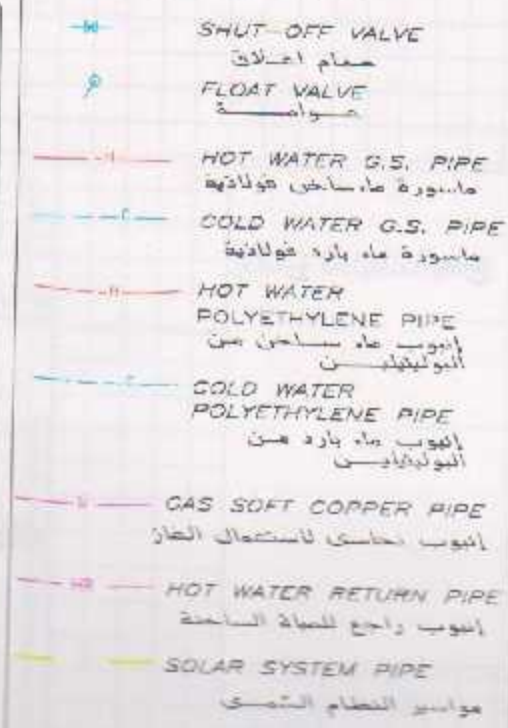 SHUT OFF VALVE
صمام اغلاق
FLOAT VALVE
عوامة
H
HOT WATER G.S. PIPE
ماسورة ماء ساخن فولاذية
C
COLD WATER G.S. PIPE
ماسورة ماء بارد فولاذية
H
HOT WATER
POLYETHYLENE PIPE
إنبوب ماء ساخن من
البوليثيلين
C
COLD WATER
POLYETHYLENE PIPE
إنبوب ماء بارد من
البوليثيلين
GAS SOFT COPPER PIPE
إنبوب نحاسى لاستعمال الغاز
HR
HOT WATER RETURN PIPE
إنبوب راجع للمياة الساخنة
SOLAR SYSTEM PIPE
مواسير النظام الشمسى